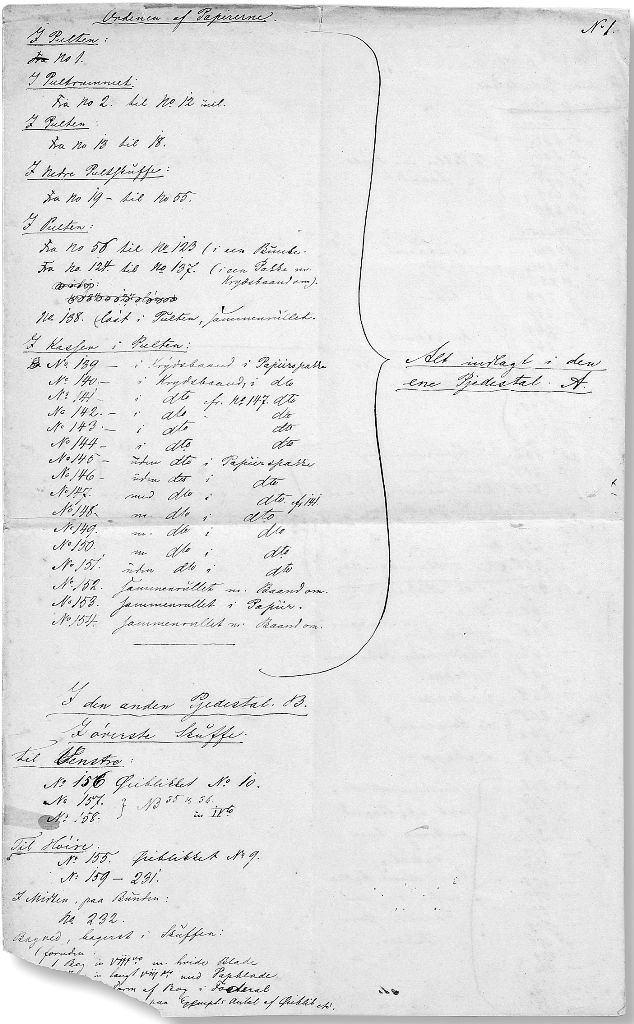 Ordenen af Papirerne.
No 1.
I Pulten:
Fra No 1.
I Pultrummet:
Fra No 2. til No 12 incl.
I Pulten:
Fra No 13 til 18.
I nedre Pultskuffe:
Fra No 19 – til No 55.
I Pulten:
Fra No 56 til No 123 (i een Bunke.
Fra No 124. til No 137. (i een Pakke m
Krydsbaand om).
No 138. løst i Pulten, sammenrullet.
I Kassen i Pulten:
No 139 – i Krydsbaand i Papiirspakke
No 140 – i Krydsbaand, i dto
No 141 – i dto cfr. No 147. dto
No 142. – i dto dto
No 143 – i dto dto
No 144 – i dto dto
No 145 – uden dto i Papiirspakke
No 146 – uden dto i dto
No 147. med dto i dto cfr 141
No 148. m. dto i dto
No 149. m. dto i dto
No 150. m. dto i dto
No 151. uden dto i dto
No 152. sammenrullet m. Baand om.
No 153. sammenrullet i Papiir.
No 154. sammenrullet m. Baand om.
Alt indlagt i den
ene Pjedestal. A.
I den anden Pjedestal. B.
I överste Skuffe.
til Venstre:
No 156 Øieblikket No 10.
No 157. } NB 35 & 36.
No 158. in IVto
Til Höire.
No 155. Øieblikket No 9.
No 159 – 231.
I Midten, paa Bunden:
No 232.
Bagved, bagerst i Skuffen:
(foruden
1 Bog in VIIIvo m. hvide Blade
in langt VIIIvo med Papblade
Form af Bog i Foderal
paa Exempl: Antal af Øieblikket.